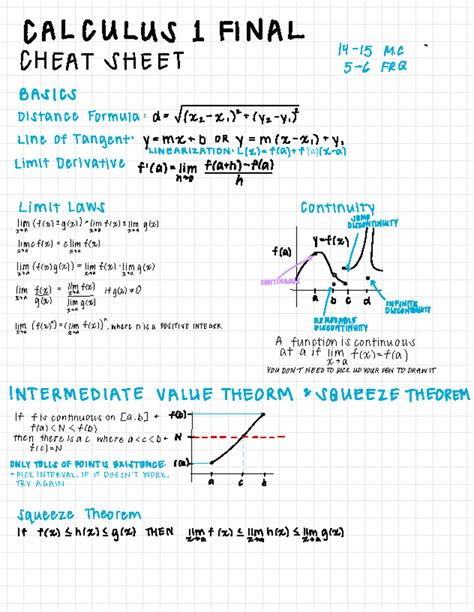 CALCULUS 1 FINAL
CHEAT SHEET
14-15 M.C
5-6 FRQ
BASICS
Distance Formula: d = √(x₂-x₁)² + (y₂-y₁)²
Line of Tangent: y = mx + b OR y = m(x-x₁) + y₁
LINEARIZATION: L(x) = f(a) + f'(a)(x-a)
Limit Derivative f'(a) = lim h→0 f(a+h) - f(a) / h
Limit Laws
lim x→a (f(x) ± g(x)) = lim x→a f(x) ± lim x→a g(x)
lim x→a c f(x) = c lim x→a f(x)
lim x→a (f(x) g(x)) = lim x→a f(x) · lim x→a g(x)
lim x→a f(x) / g(x) = lim x→a f(x) / lim x→a g(x) if g(x) ≠ 0
lim x→a (f(x))ⁿ = (lim x→a f(x))ⁿ, where n is a POSITIVE INTEGER
Continuity
JUMP DISCONTINUITY
y = f(x)
f(a)
CONTINUOUS
a b c d
REMOVABLE DISCONTINUITY
INFINITE DISCONTINUITY
A function is continuous
at a if lim x→a f(x) = f(a)
YOU DON'T NEED TO PICK UP YOUR PEN TO DRAW IT
INTERMEDIATE VALUE THEORM & SQUEEZE THEOREM
If f is continuous on [a,b] +
f(a) < N < f(b)
then there is a c where a < c < b +
f(c) = N
ONLY TELLS OF POINTS EXISTENCE:
→ PICK INTERVAL, IF IT DOESN'T WORK,
TRY AGAIN
f(b)
N
f(a)
a c b
Squeeze Theorem
If f(x) ≤ h(x) ≤ g(x) THEN lim x→a f(x) ≤ lim x→a h(x) ≤ lim x→a g(x)